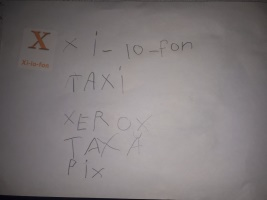 X
Xi-lo-fon
X i-lo-fon
TAXi
XEROX
TAXA
Pix